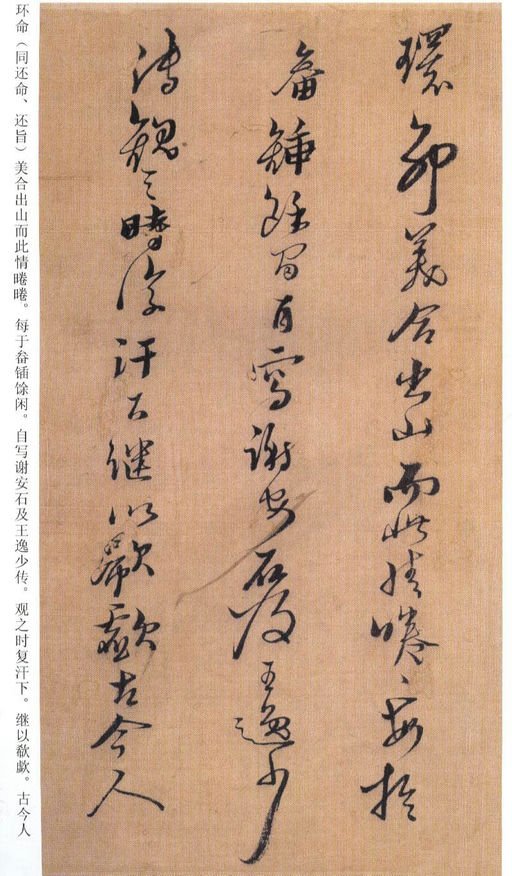 環命美合出山而此情睠〻每於
畚鍤餘間自寫謝安石及王逸少
傳觀之時復汗下繼以欷歔古今人
环命（同还命、还旨）美合出山而此情睠睠。每于畚锸馀闲。自写谢安石及王逸少传。观之时复汗下。继以欷歔。古今人